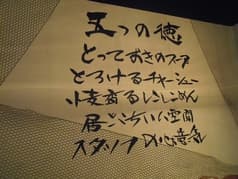 五つの徳
とっておきのスープ
とろけるチャーシュー
小麦香るしこしこめん
居ごこちいい空間
スタッフの心意気